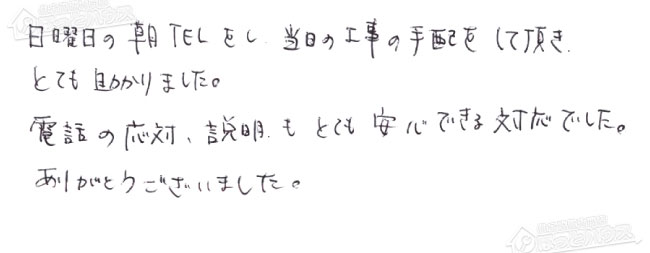 日曜日の朝TELをし、当日の工事の手配をして頂き、
とても助かりました。
電話の応対、説明もとても安心できる対応でした。
ありがとうございました。